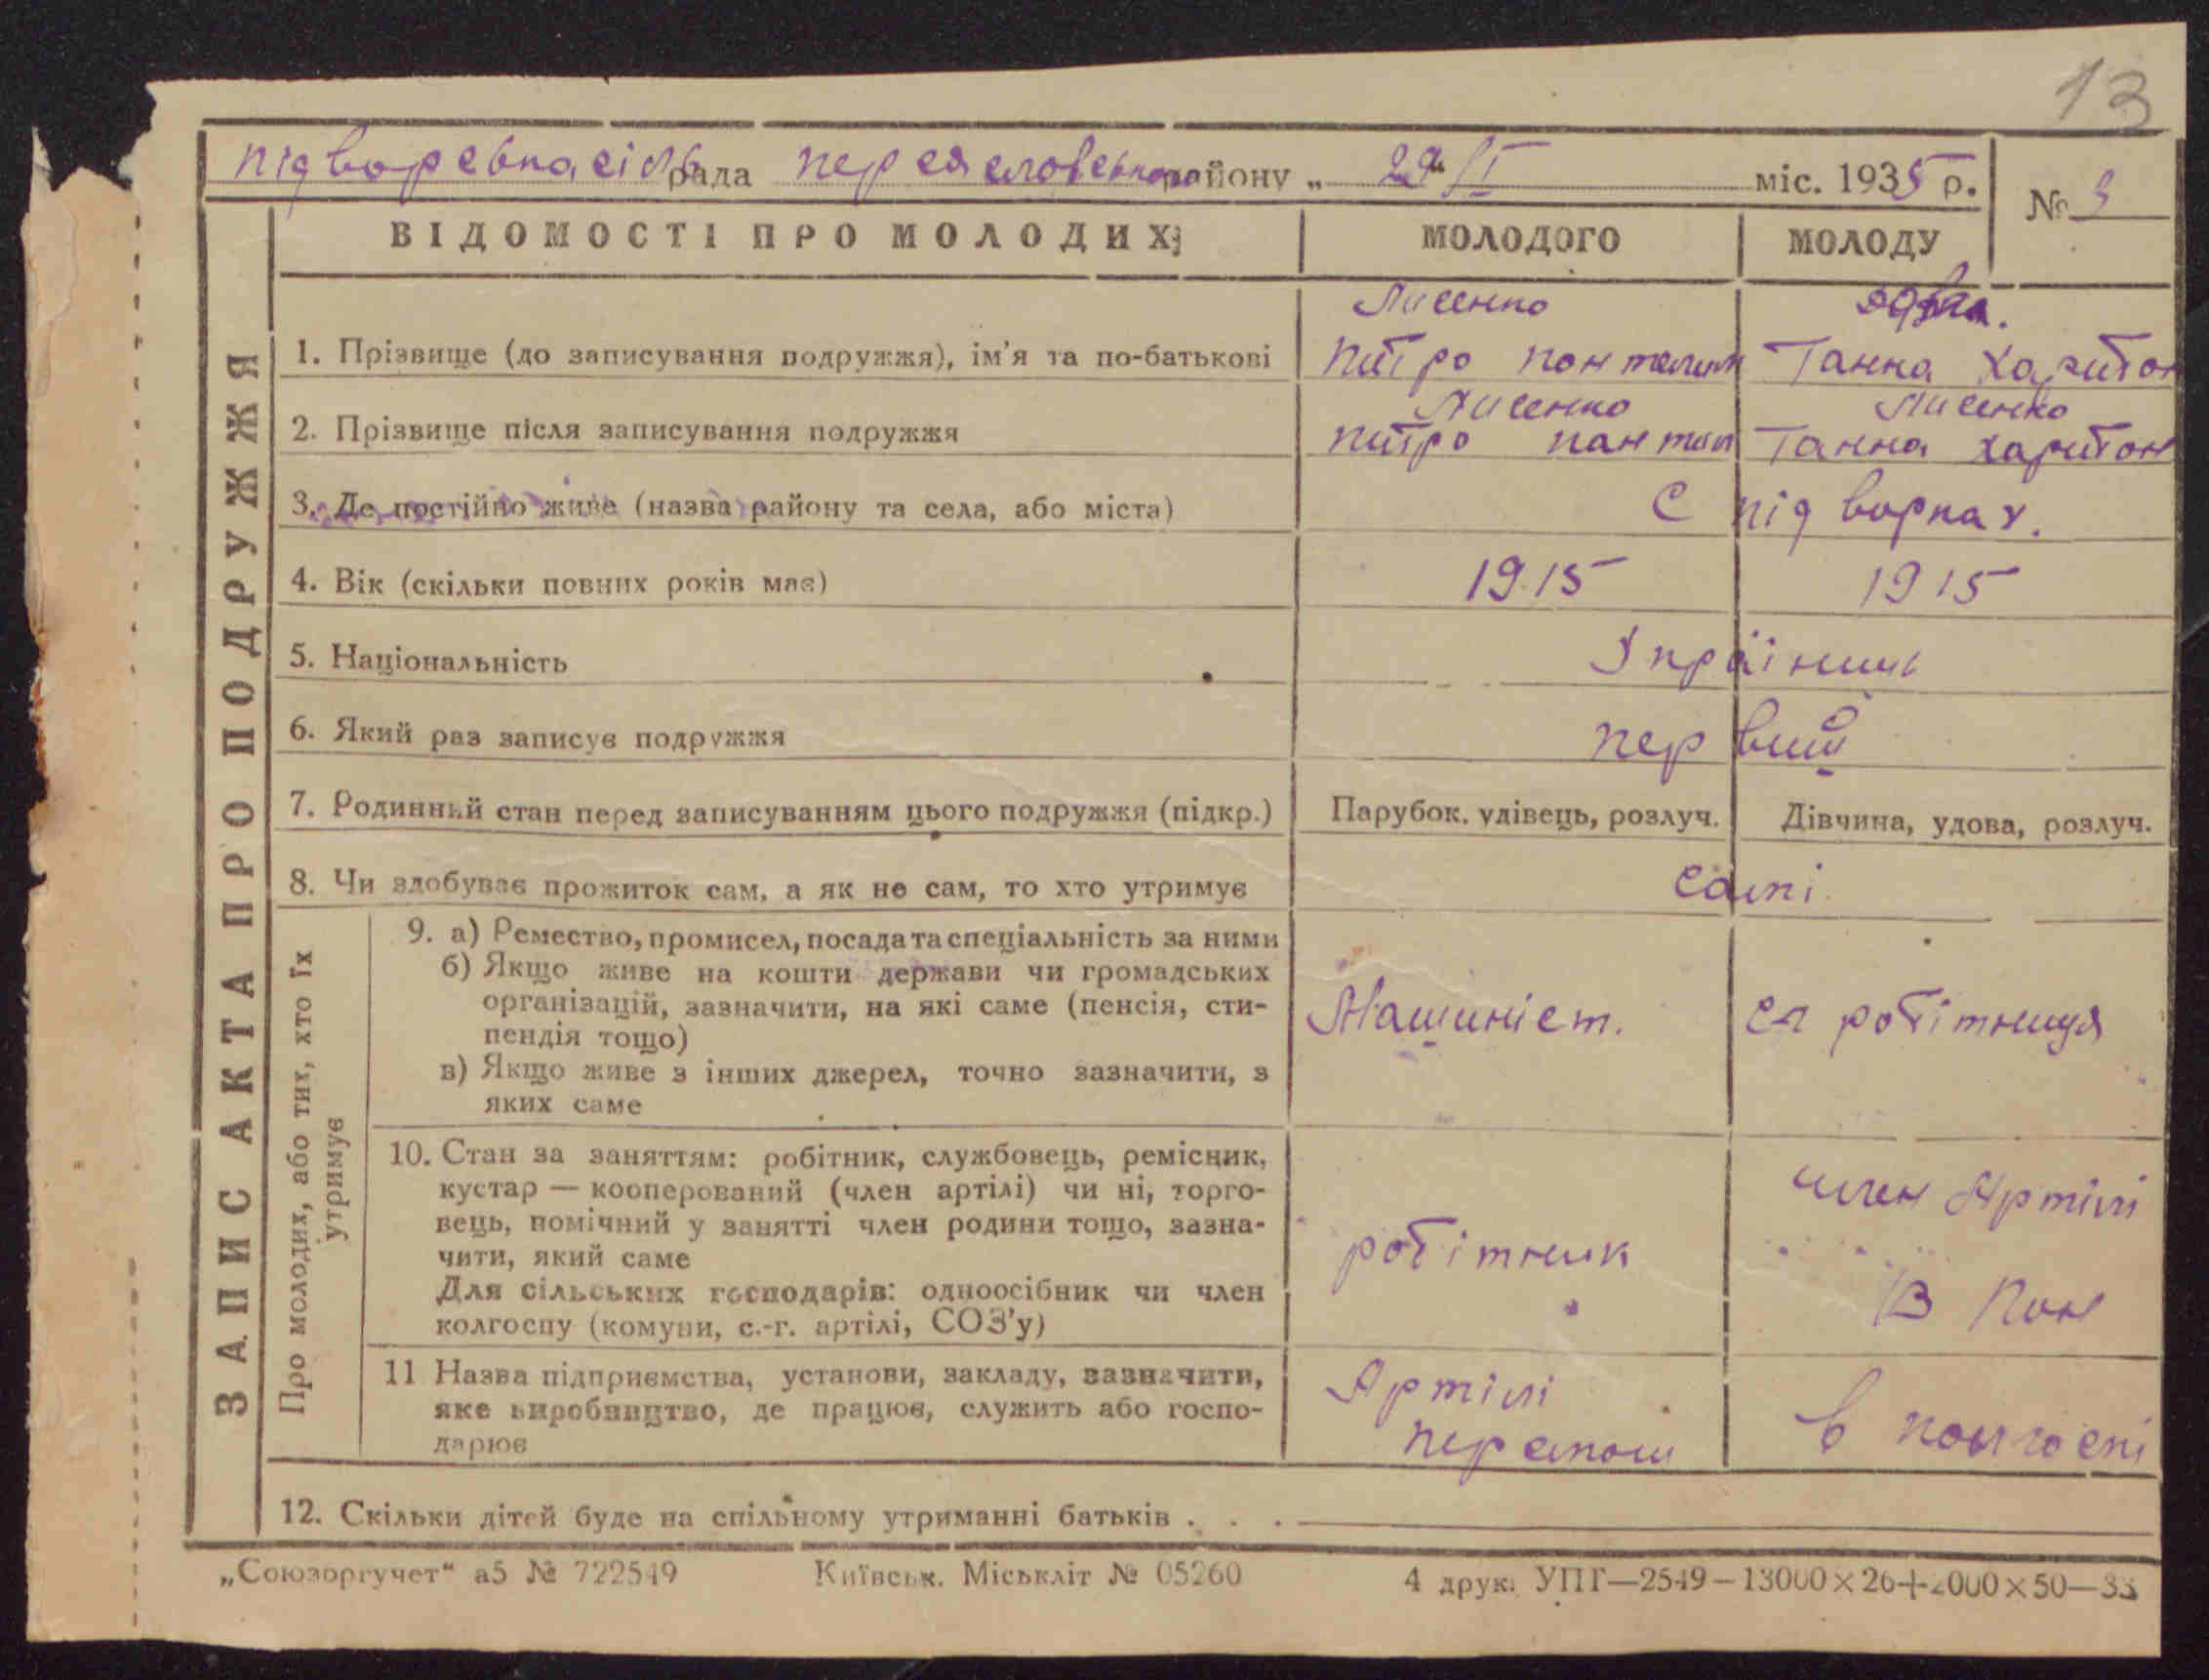 13
підворська сіль рада переяславський району „ 29" I міс. 1935 р. № 3
ВІДОМОСТІ ПРО МОЛОДИХ:
МОЛОДОГО
МОЛОДУ
Лисенко
1. Прізвище (до записування подружжя), ім'я та по-батькові
Питро Пантелим
Ганна Харитон
2. Прізвище після записування подружжя
Лисенко
Питро Пантел
Лисенко
Ганна Харитон
3. Де постійно живе (назва району та села, або міста)
с підворках.
4. Вік (скільки повних років має)
1915
1915
5. Національність
Українці
6. Який раз записує подружжя
первий
7. Родинний стан перед записуванням цього подружжя (підкр.)
Парубок, удівець, розлуч.
Дівчина, удова, розлуч.
8. Чи здобуває прожиток сам, а як не сам, то хто утримує
самі
ЗАПИС АКТА ПРО ПОДРУЖЖЯ
Про молодих, або тих, хто їх
утримує
9. а) Ремество, промисел, посада та спеціальність за ними
б) Якщо живе на кошти держави чи громадських
організацій, зазначити, на які саме (пенсія, сти-
пендія тощо)
в) Якщо живе з інших джерел, точно зазначити, з
яких саме
Машиніст.
сл робітниця
10. Стан за заняттям: робітник, службовець, ремісник,
кустар — кооперований (член артілі) чи ні, торго-
вець, помічний у занятті член родини тощо, зазна-
чити, який саме
Для сільських господарів: одноосібник чи член
колгоспу (комуни, с.-г. артілі, СОЗ'у)
робітник
член Артілі
11 Назва підприємства, установи, закладу, зазначити,
яке виробництво, де працює, служить або госпо-
дарює
Артілі
в колгоспі
12. Скільки дітей буде на спільному утриманні батьків . . .
„Союзоргучет" а5 № 722549 Київськ. Міськліт № 05260 4 друк. УПГ—2549—13000×26+2000×50—33